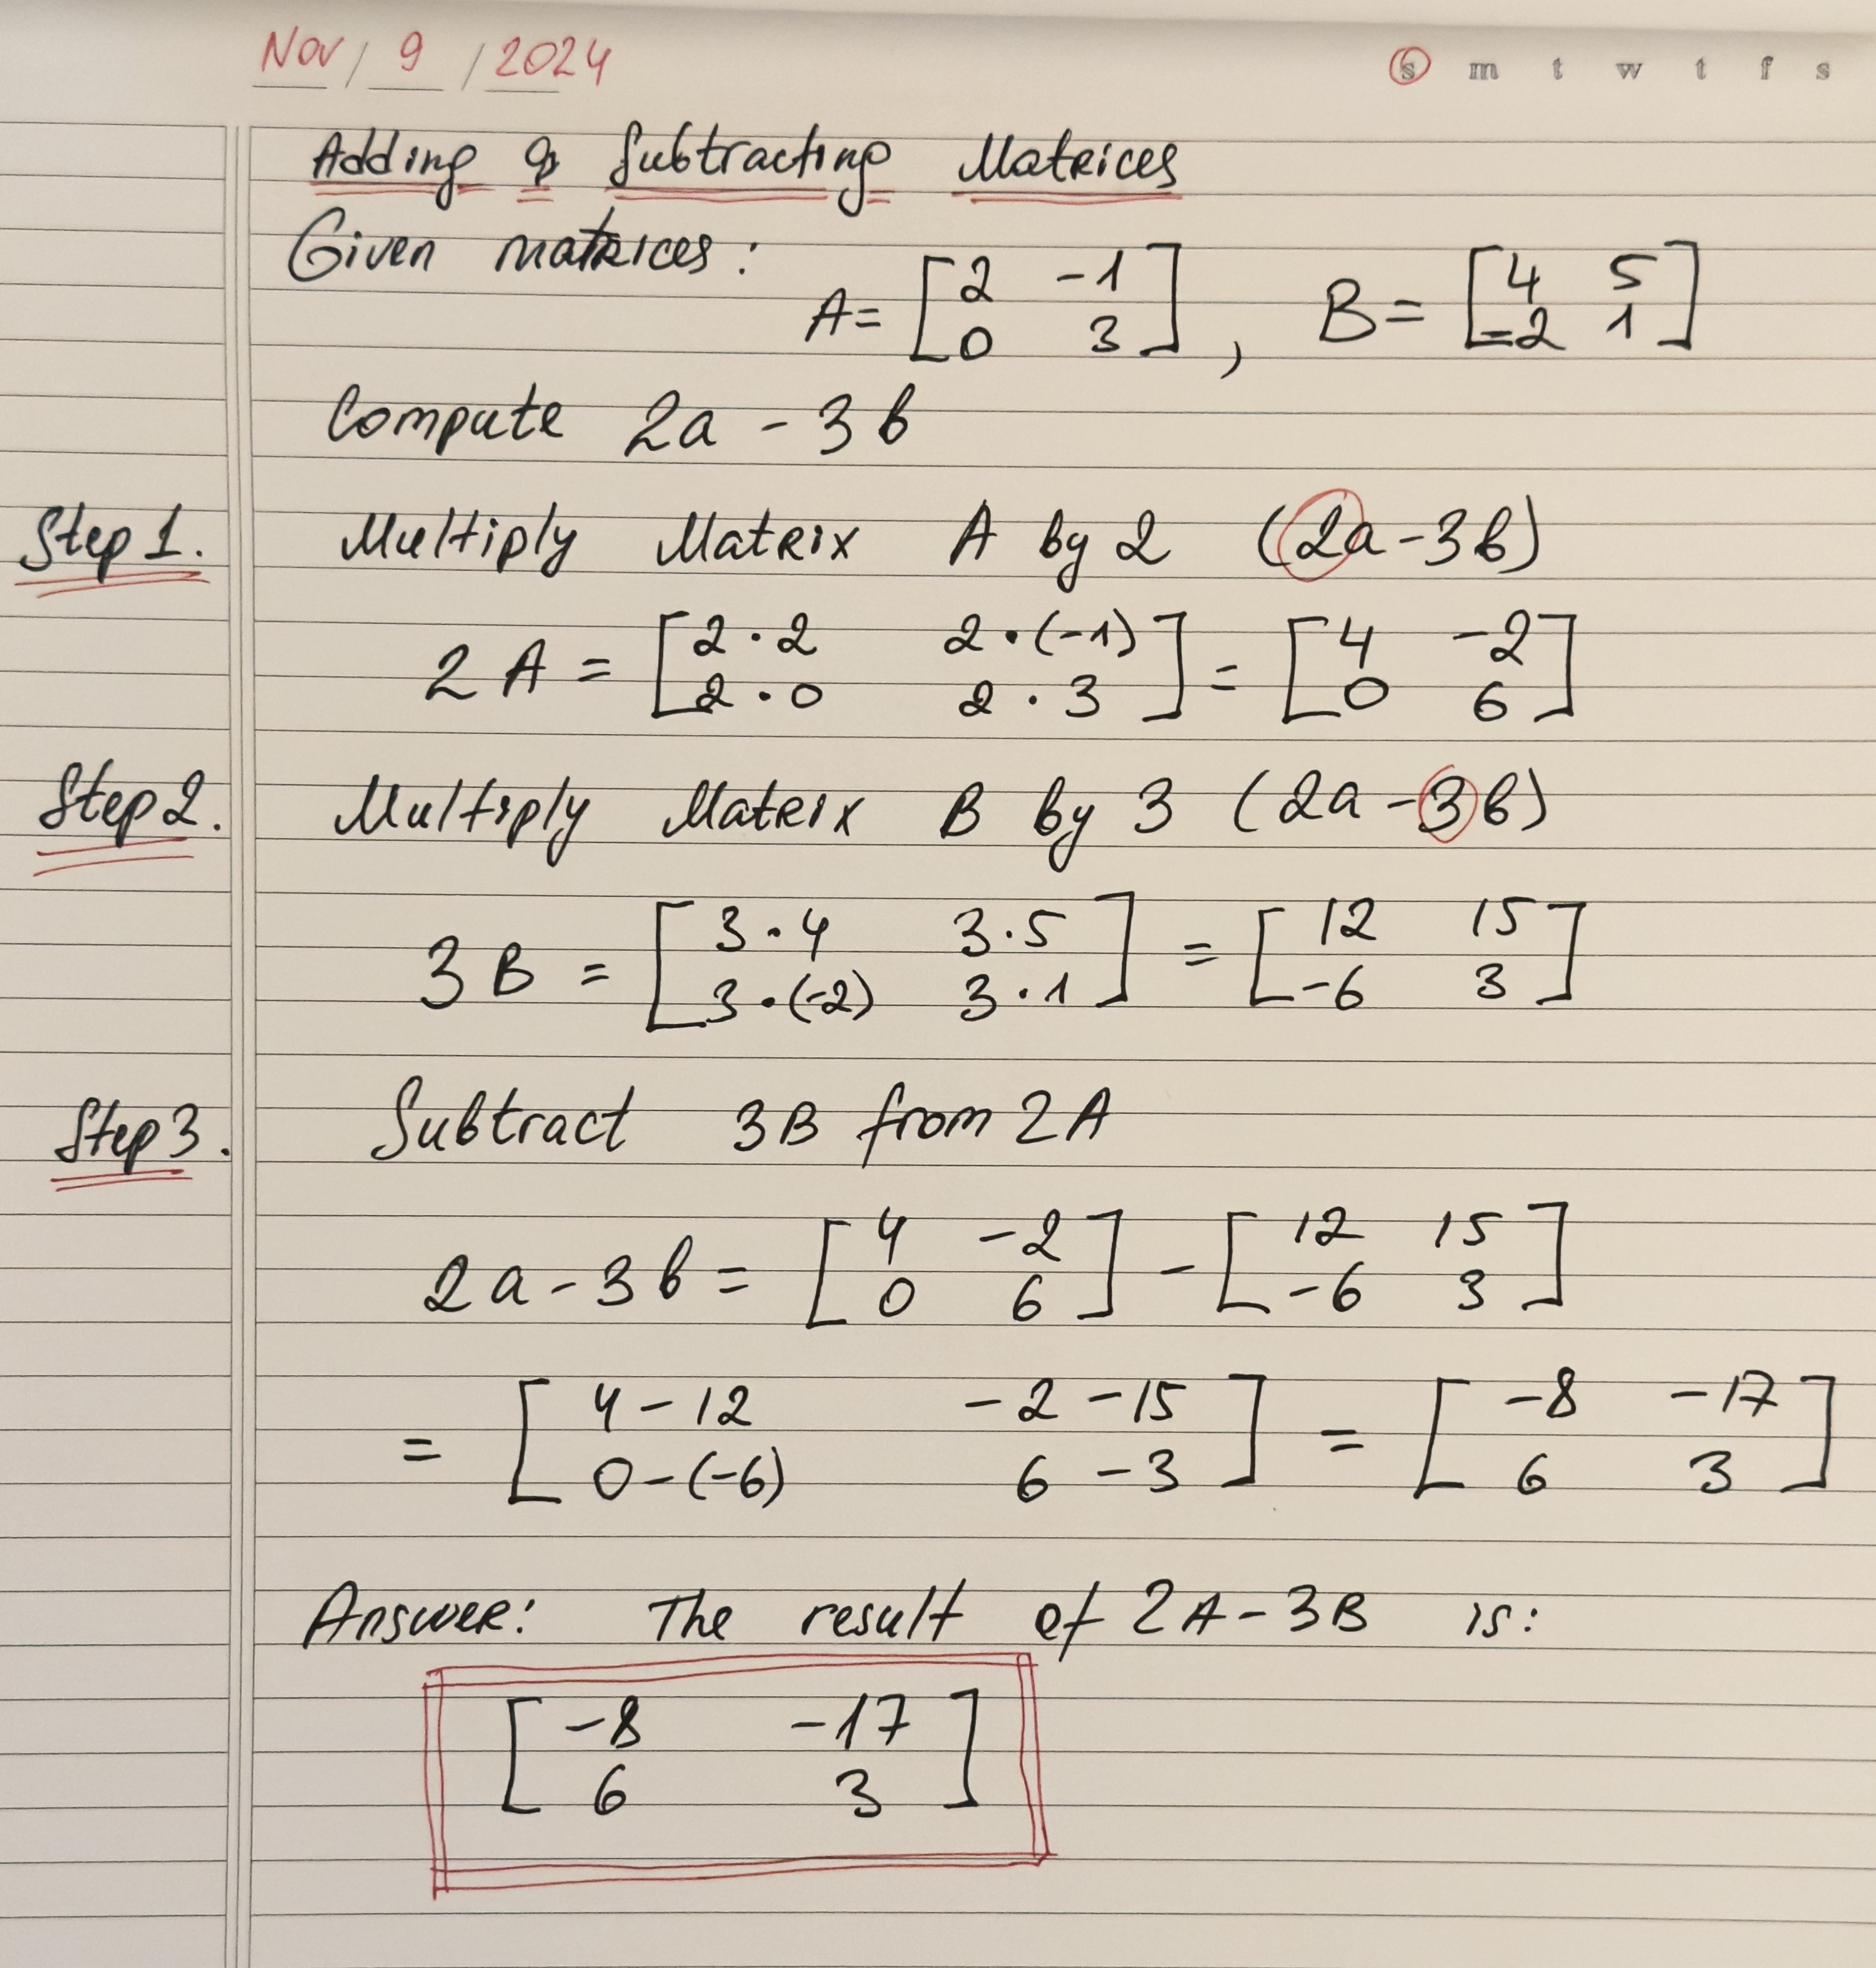 Nov / 9 / 2024 s m t w t f s
Adding & Subtracting Matrices
Given matrices:
A = [2 -1; 0 3], B = [4 5; -2 1]
Compute 2a - 3b
Step 1. Multiply Matrix A by 2 (2a - 3b)
2A = [2·2 2·(-1); 2·0 2·3] = [4 -2; 0 6]
Step 2. Multiply Matrix B by 3 (2a - 3b)
3B = [3·4 3·5; 3·(-2) 3·1] = [12 15; -6 3]
Step 3. Subtract 3B from 2A
2a - 3b = [4 -2; 0 6] - [12 15; -6 3]
= [4 - 12 -2 - 15; 0 - (-6) 6 - 3] = [-8 -17; 6 3]
Answer: The result of 2A - 3B is:
[-8 -17; 6 3]